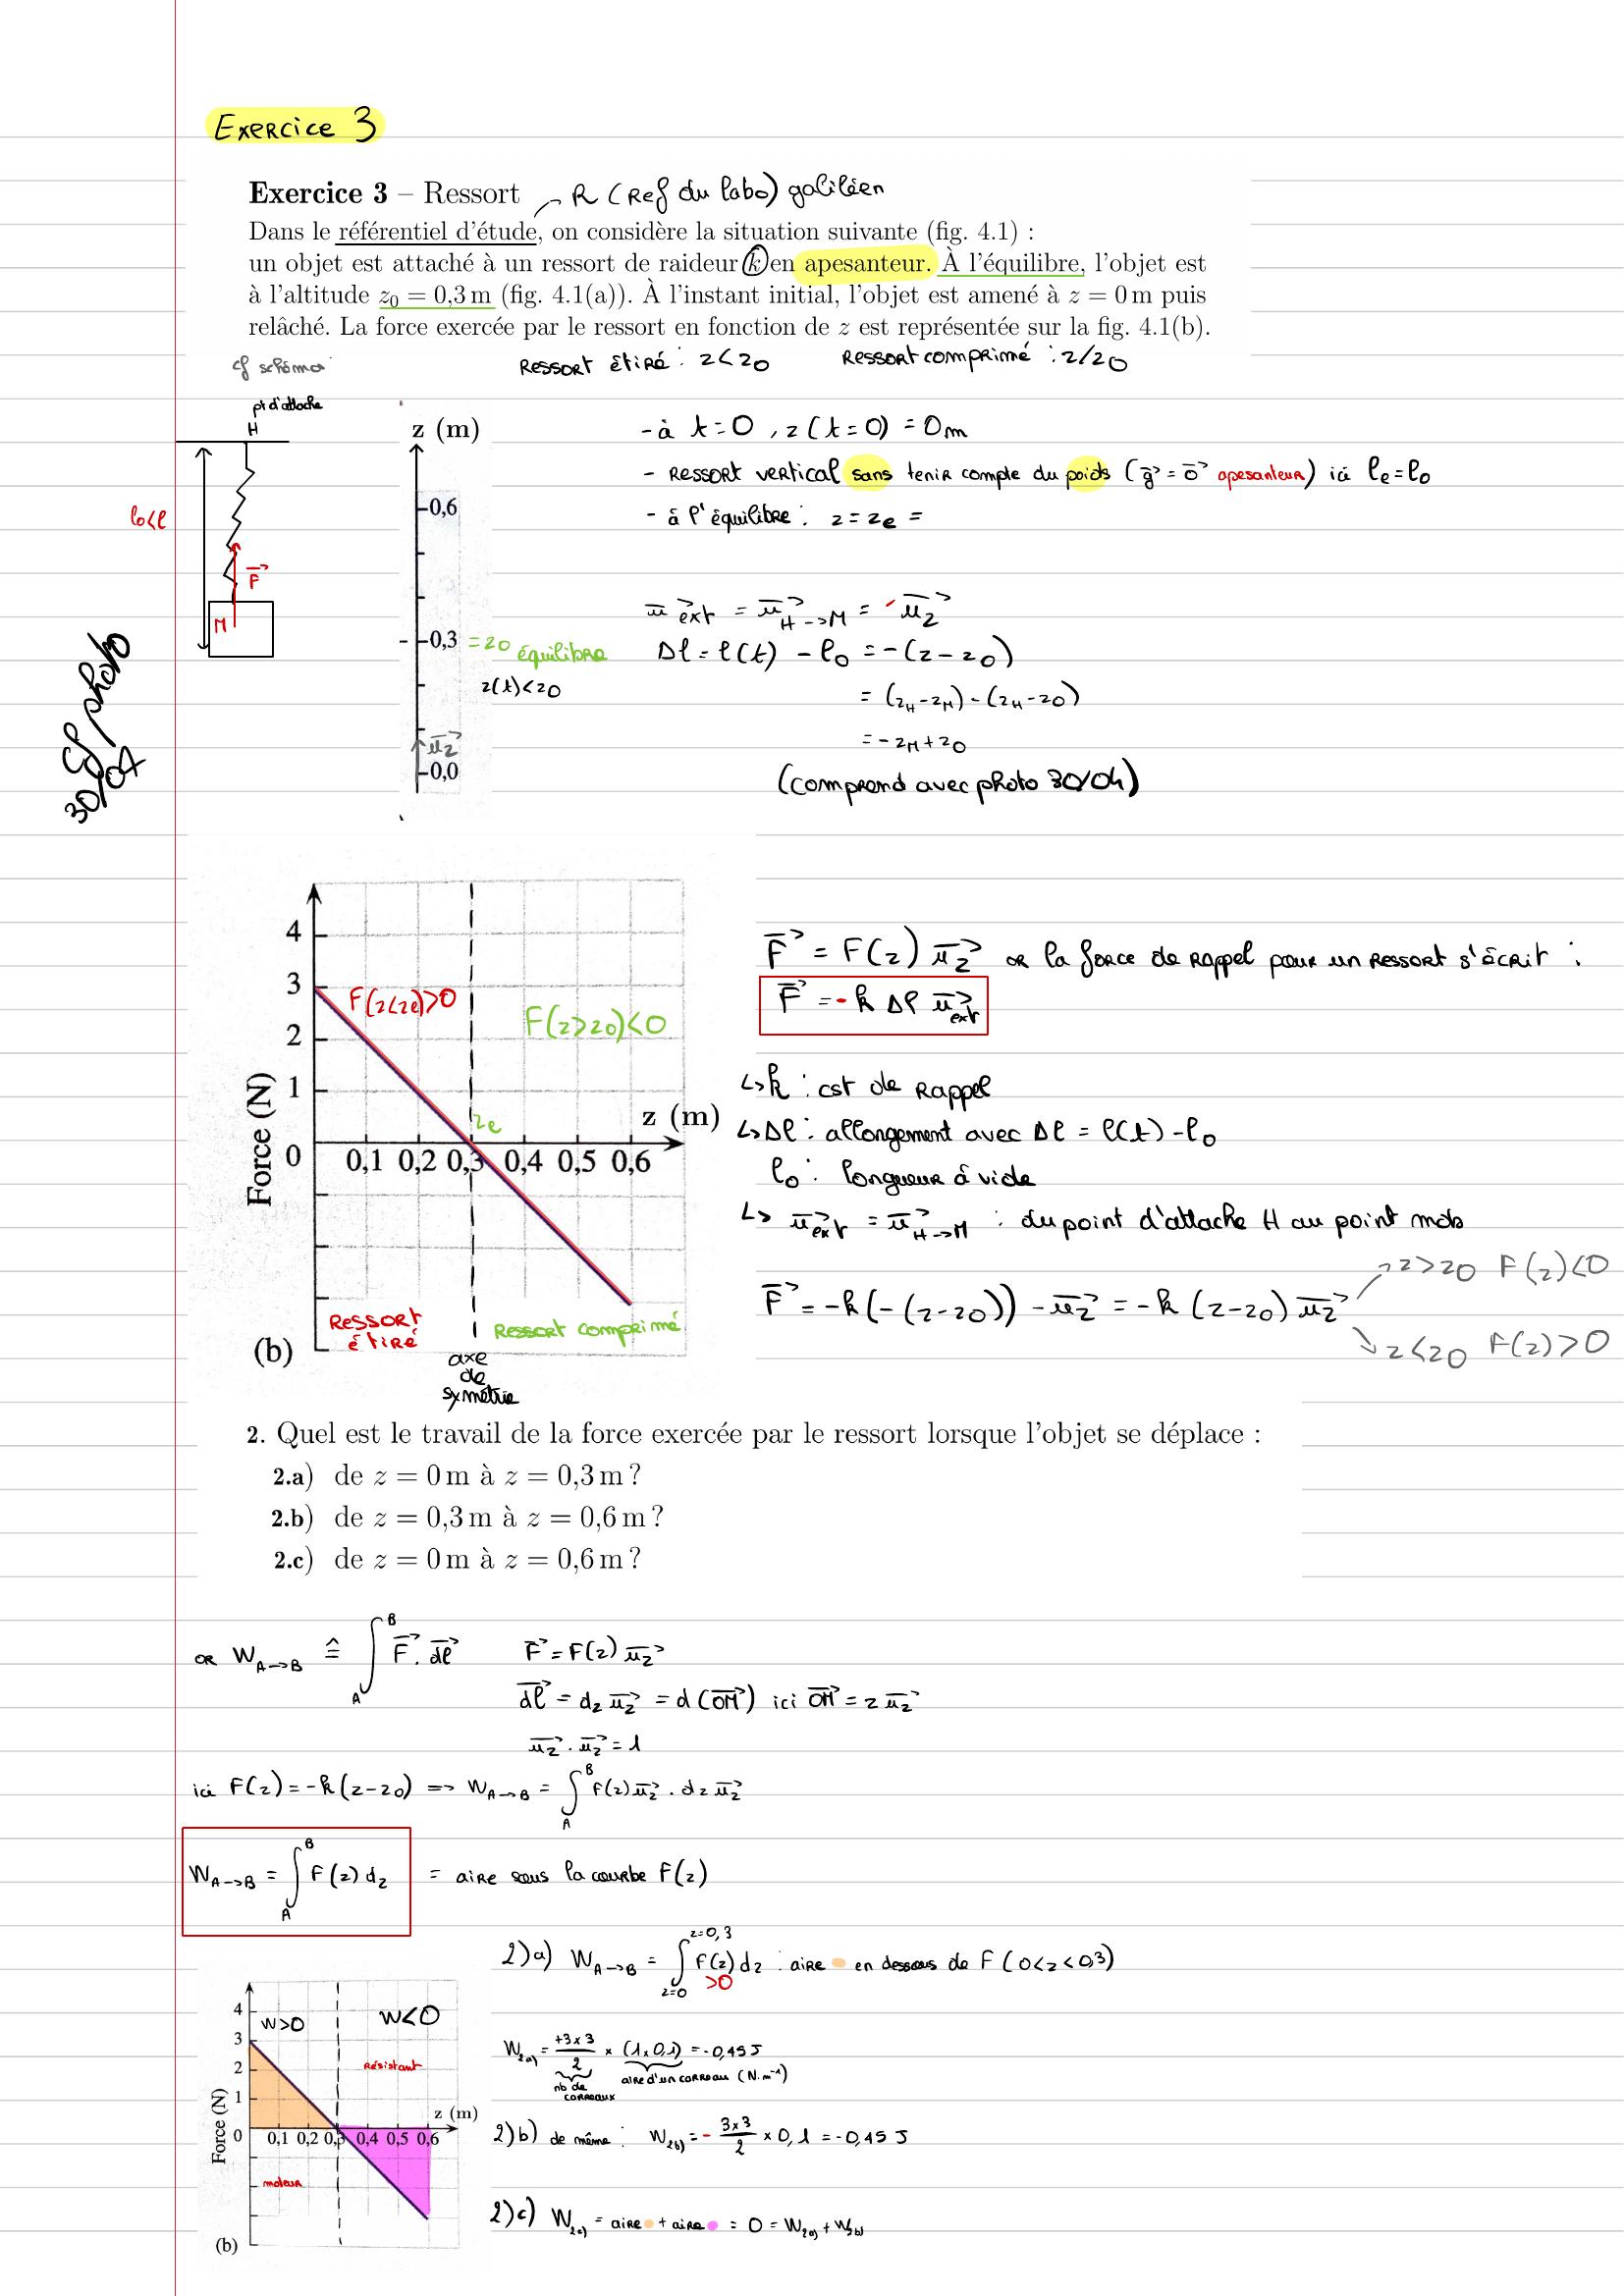 Exercice 3
Exercice 3 – Ressort → R (Ref du labo) galiléen
Dans le référentiel d'étude, on considère la situation suivante (fig. 4.1) :
un objet est attaché à un ressort de raideur k en apesanteur. À l'équilibre, l'objet est
à l'altitude z₀ = 0,3 m (fig. 4.1(a)). À l'instant initial, l'objet est amené à z = 0 m puis
relâché. La force exercée par le ressort en fonction de z est représentée sur la fig. 4.1(b).
cf schéma
Ressort étiré : z<z0 Ressort comprimé : z/z0
pt d'attache
H
l0<l
F⃗
M
cf photo
30/04
z (m)
0,6
0,3 = z0 équilibre
z(t)<z0
u⃗z
0,0
- à t=0, z(t=0) = 0m
- Ressort vertical sans tenir compte du poids (g⃗ = 0⃗ apesanteur) ici le=l0
- à l'équilibre : z = ze =
u⃗ext = u⃗H->M = -u⃗z
Δl = l(t) - l0 = -(z-z0)
= (zH-zM)-(zH-z0)
= -zM+z0
(comprend avec photo 30/04)
Force (N)
4
3
2
1
0
F(z<ze)>0
F(z>z0)<0
ze
z (m)
0,1 0,2 0,3 0,4 0,5 0,6
Ressort étiré
Ressort comprimé
(b)
axe
de
symétrie
F⃗ = F(z) u⃗z or la force de rappel pour un ressort s'écrit :
F⃗ = -k Δl u⃗ext
↳ k : cst de rappel
↳ Δl : allongement avec Δl = l(t)-l0
l0 : longueur à vide
↳ u⃗ext = u⃗H->M : du point d'attache H au point mob
F⃗ = -k(-(z-z0)) -u⃗z = -k (z-z0) u⃗z
→ z>z0 F(z)<0
↘ z<z0 F(z)>0
2. Quel est le travail de la force exercée par le ressort lorsque l'objet se déplace :
2.a) de z = 0 m à z = 0,3 m ?
2.b) de z = 0,3 m à z = 0,6 m ?
2.c) de z = 0 m à z = 0,6 m ?
or W A->B ≙ ∫_A^B F⃗ . dl⃗ F⃗ = F(z) u⃗z
dl⃗ = dz u⃗z = d(OM⃗) ici OM⃗ = z u⃗z
u⃗z . u⃗z = 1
ici F(z) = -k(z-z0) => W A->B = ∫_A^B F(z) u⃗z . dz u⃗z
W A->B = ∫_A^B F(z) dz = aire sous la courbe F(z)
2)a) W A->B = ∫_z=0^z=0,3 F(z) dz : aire en dessous de F (0<z<0,3)
>0
W2a) = +3x3/2 x (1x0,1) = -0,45 J
nb de carreaux
aire d'un carreau (N.m⁻¹)
2)b) de même : W2b) = - 3x3/2 x 0,1 = -0,45 J
2)c) W2c) = aire + aire = 0 = W2a) + W2b)
Force (N)
4
3
2
1
0
W>0
W<0
Résistant
z (m)
0,1 0,2 0,3 0,4 0,5 0,6
moteur
(b)